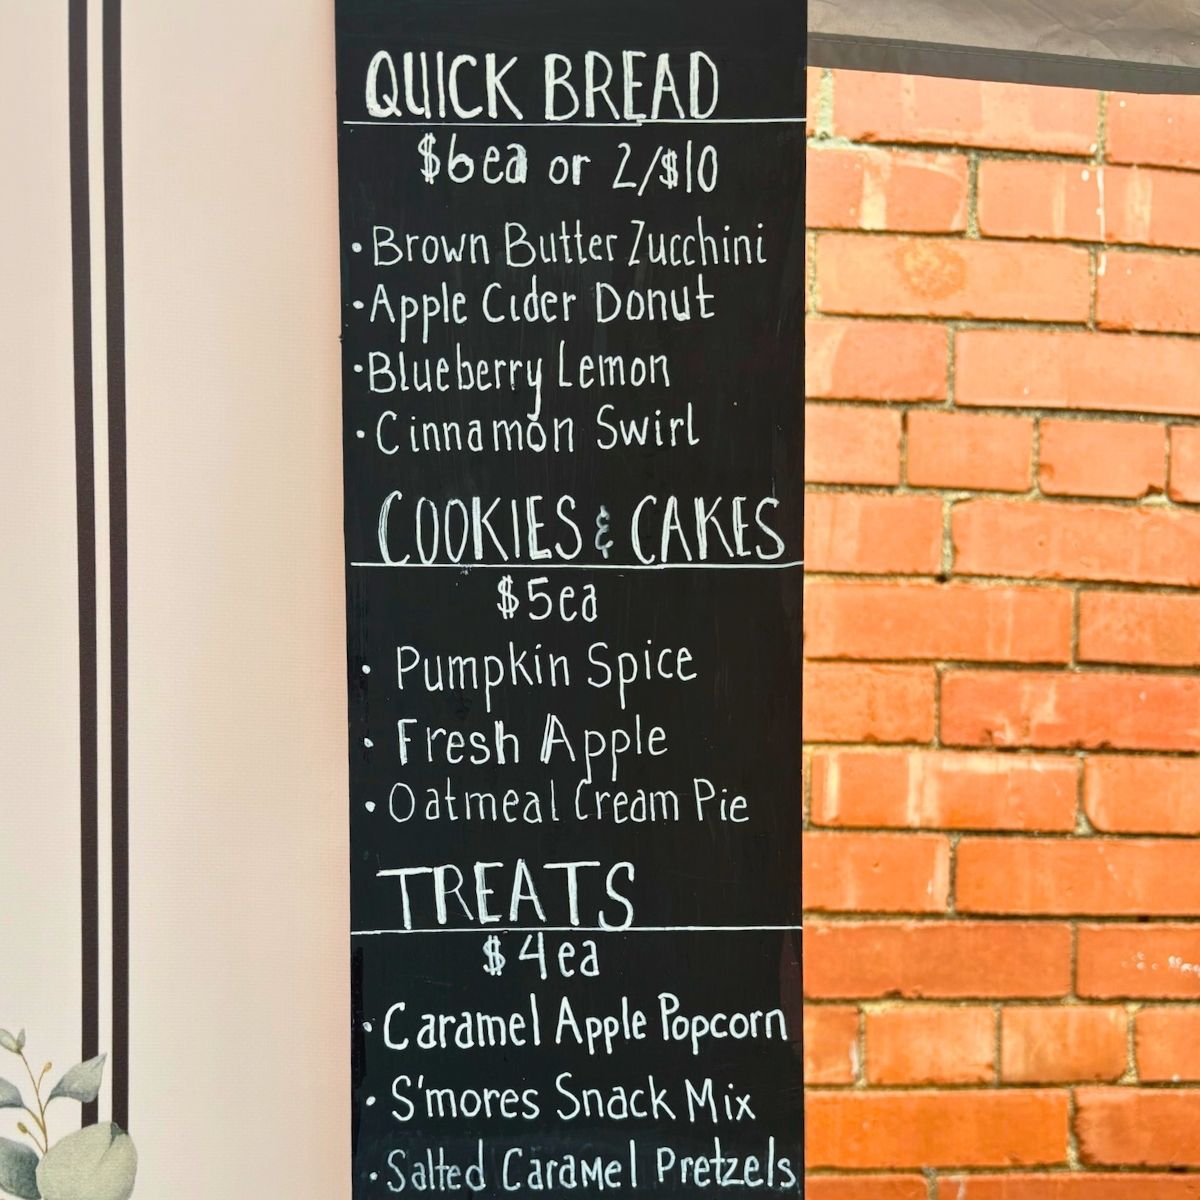 QUICK BREAD
$6ea or 2/$10
• Brown Butter Zucchini
• Apple Cider Donut
• Blueberry Lemon
• Cinnamon Swirl
COOKIES & CAKES
$5ea
• Pumpkin Spice
• Fresh Apple
• Oatmeal Cream Pie
TREATS
$4ea
• Caramel Apple Popcorn
• S'mores Snack Mix
• Salted Caramel Pretzels